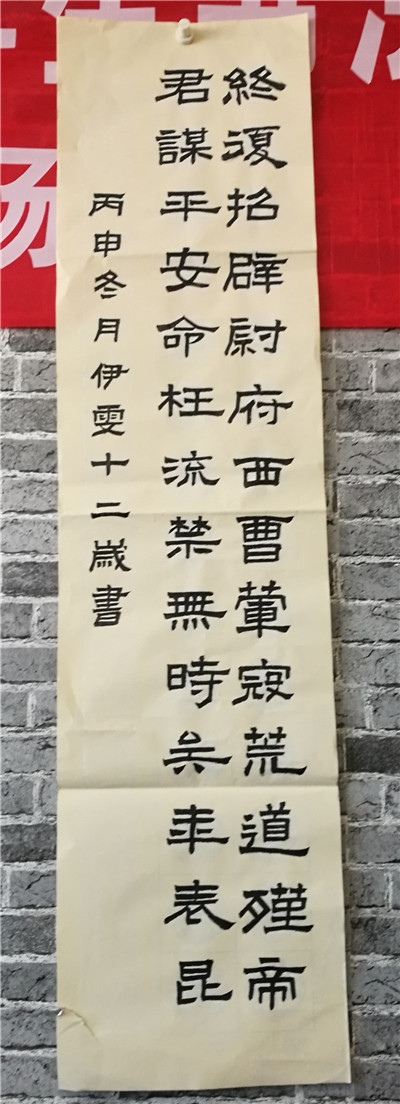 終復招辟尉府西曹葷寇荒道殣帝
君謀平安命枉流禁無時年表昆
丙申冬月伊雯十二歲書